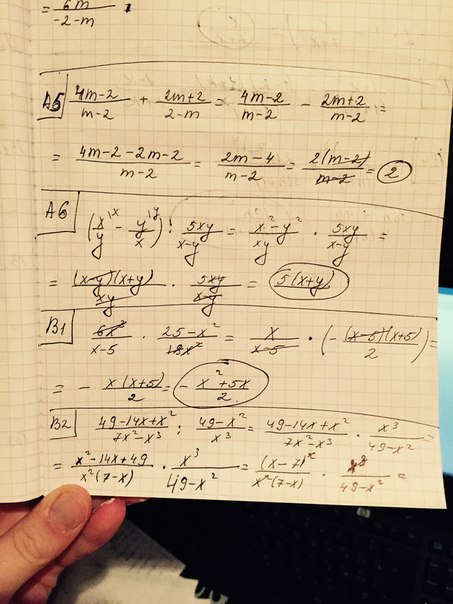 = 6m / -2-m .
A5 (4m-2)/(m-2) + (2m+2)/(2-m) = (4m-2)/(m-2) - (2m+2)/(m-2) =
= (4m-2-2m-2)/(m-2) = (2m-4)/(m-2) = 2(m-2)/(m-2) = 2
A6 (x/y \x - y/x \y) : 5xy/(x-y) = (x²-y²)/xy · 5xy/(x-y) =
= (x-y)(x+y)/xy · 5xy/(x-y) = 5(x+y)
B1 6x³/(x-5) · (25-x²)/18x² = x/(x-5) · (-(x-5)(x+5)/2) =
= - x(x+5)/2 = - (x²+5x)/2
B2 (49-14x+x²)/(7x²-x³) : (49-x²)/x³ = (49-14x+x²)/(7x²-x³) · x³/(49-x²) =
= (x²-14x+49)/(x²(7-x)) · x³/(49-x²) = (x-7)²/(x²(7-x)) · x³/(49-x²) =